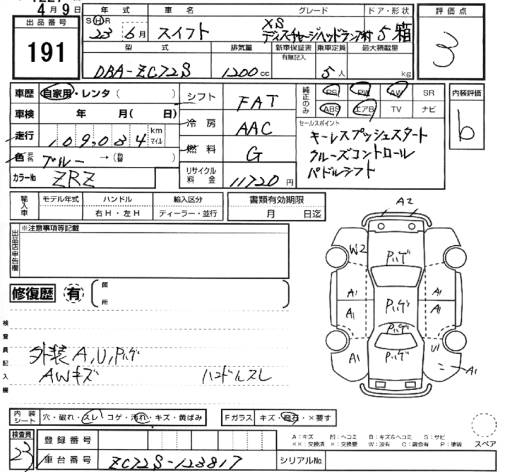 4月9日
出品番号
191
年式
グレード
ドア・形状
評価点
S H 23年 6月
スイフト
XS
ディスチャージヘッドランプ付
5
箱
3
型式
排気量
新車保証書
有無記入
乗車定員
最大積載量
DBA-ZC72S
1200 cc
5人
kg
車歴
自家用・レンタ( )
シフト
FAT
純正のみ
PS
PW
AW
SR
内装評価
車検
年 月( 日)
ABS
エアB
TV
ナビ
b
走行
109,034 km
マイル
冷房
AAC
セールスポイント
キーレスプッシュスタート
クルーズコントロール
パドルシフト
色
ブルー→
燃料
G
カラーNo
ZRZ
リサイクル
料金
11720円
輸入車
モデル年式
ハンドル
輸入区分
書類有効期限
右H・左H
ディーラー・並行
月 日迄
※注意事項等記載
修復歴
有
箇所
検査員記入欄
外装A,U,Pハゲ
AWキズ
ハンドルスレ
A2
W2
Pハゲ
A1
A1
Pハゲ
A1
A1
Pハゲ
A1
Pハゲ
U1
A1
内装
シート
穴・破れ・スレ・コゲ・汚れ・キズ・黄ばみ
Fガラス
キズ・飛石・×要す
検査員
23
登録番号
車台番号
ZC72S-123817
シリアルNo
A:キズ
U:ヘコミ
B:キズ&ヘコミ
S:サビ
スペア